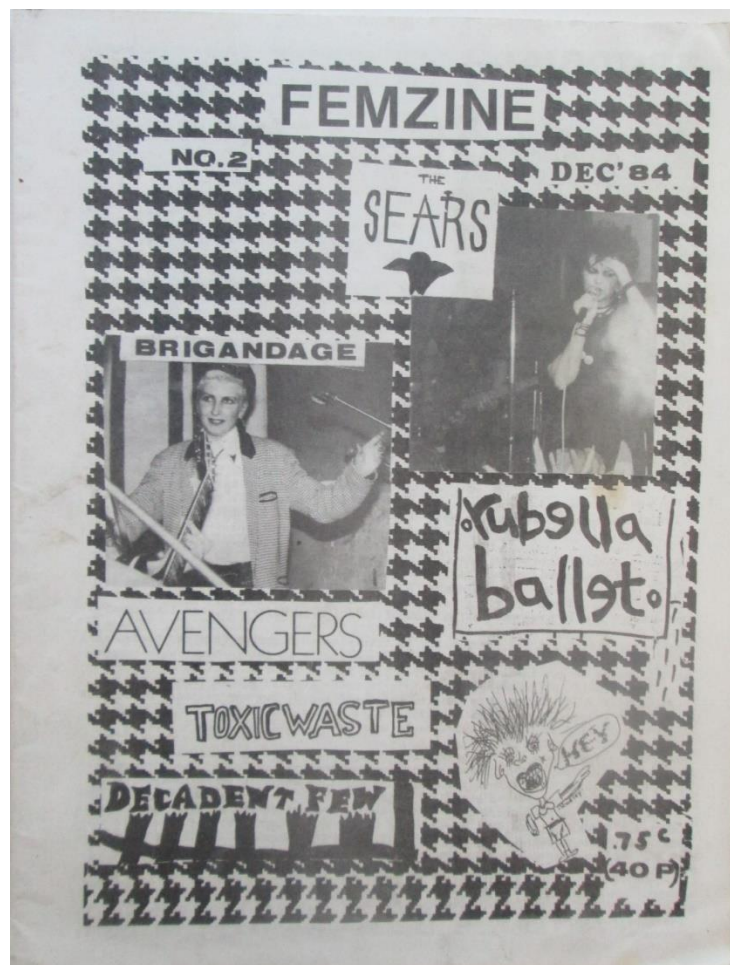 FEMZINE
NO.2
DEC'84
THE
SEARS
BRIGANDAGE
rubella
ballet
AVENGERS
TOXIC WASTE
HEY
DECADENT FEW
.75¢
(40 P)